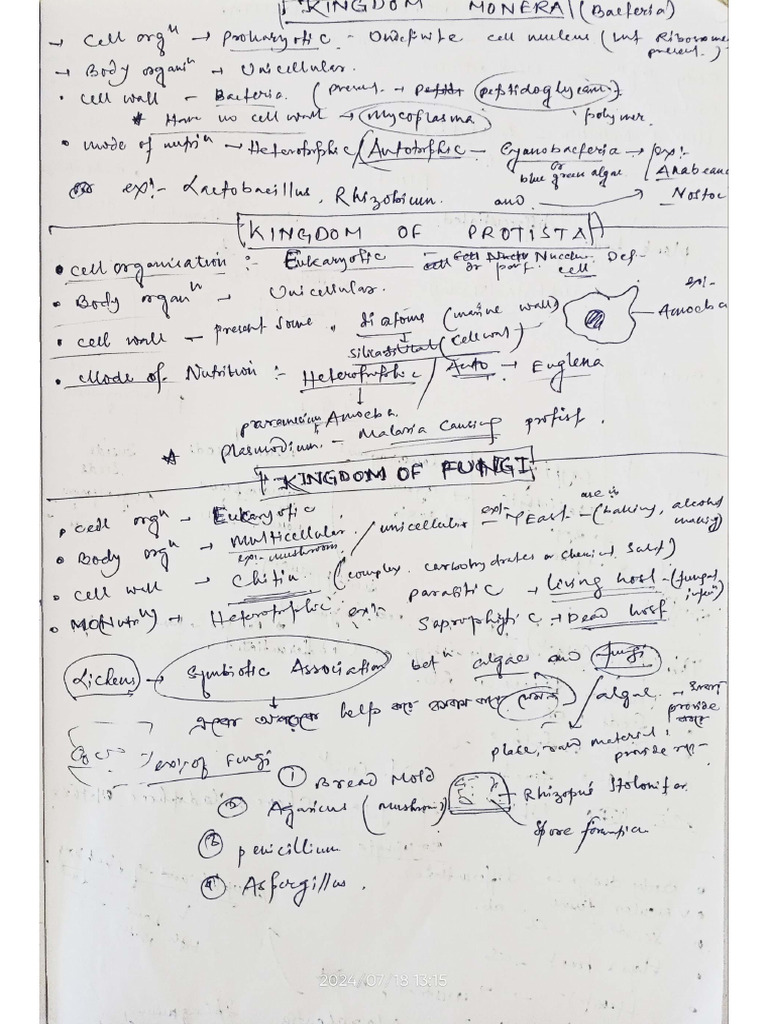 KINGDOM MONERA (Bacteria)
→ Cell orgⁿ → Prokaryotic - Undefinite cell nucleus (but Ribosome
present.)
→ Body organiⁿ → Unicellular.
• Cell wall - Bacteria. (present → peptidoglycan)
* Have no cell wall → mycoplasma polymer.
• mode of nutriⁿ → Heterotrophic / Autotrophic - Cyanobacteria → ex:-
or blue green algae Anabeana
ex:- Lactobacillus, Rhizobium. and Nostoc
KINGDOM OF PROTISTA
• cell organisation :- Eukaryotic
cell
• Body organⁿ → Unicellular.
ex:-
Amoeba
• cell wall - present some, diatoms (marine wall)
(cell wall)
• Mode of Nutrition :- Heterotrophic / Auto → Euglena
paramecium, Amoeba.
* Plasmodium - Malaria causing protist.
KINGDOM OF FUNGI
• cell orgⁿ → Eukaryotic
• Body orgⁿ → Multicellular / unicellular - ex:- Yeast - (baking, alcohol
making)
ex:- mushroom
• cell wall → Chitin (complex carbohydrates or chemical salt)
• MO(Nutriⁿ) → Heterotrophic ex:- parasitic → Living host - (fungal
Saprophytic → Dead host
Lichens → Symbiotic Association betⁿ algae and fungi
help algae
provide
place, raw material
provide
ex:- of Fungi
① Bread Mold
② Agaricus (mushroom) Rhizopus Stolonifer
③ penicillium Spore formation
④ Aspergillus.
2024/07/13 13:15